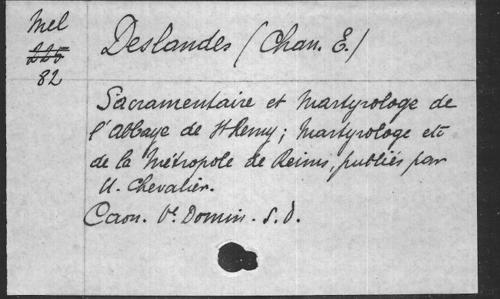 Mel
226
82
Deslandes (Chan. E.)
Sacramentaire et Martyrologe de
l'abbaye de St Remy; Martyrologe etc
de la Métropole de Reims, publiés par
U. Chevalier.
Caen. Ve Domin. s.d.